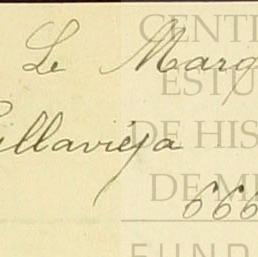 Le Marq
illavieja
666
CENT
ESTU
DE HIS
DE M
FUND